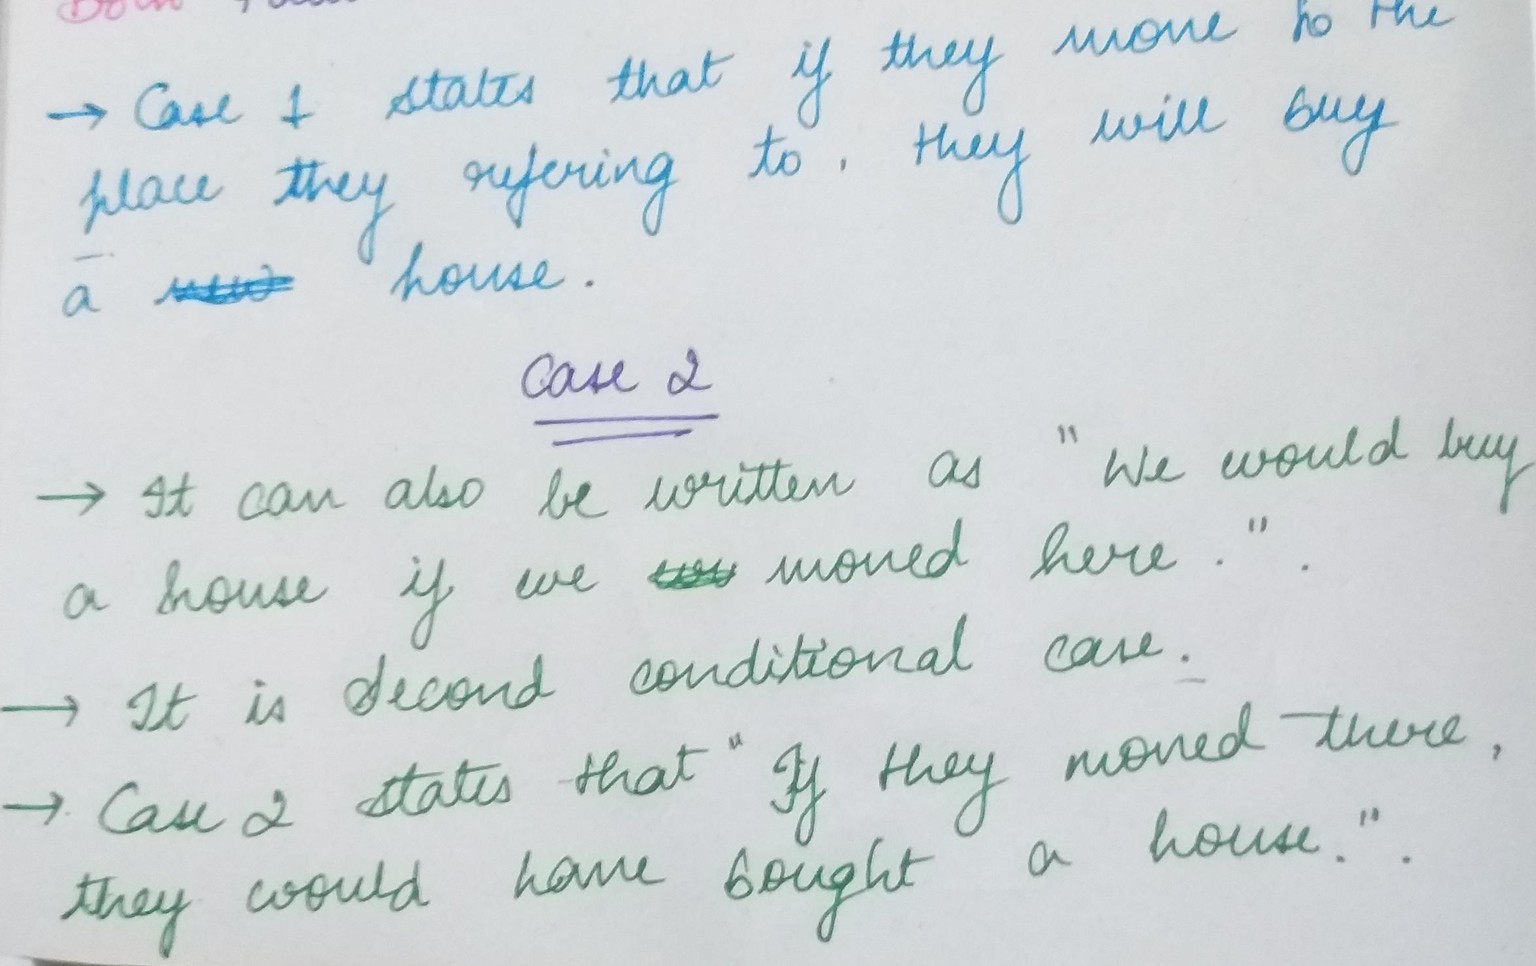 → Case 1 states that if they move to the
place they refering to, they will buy
a house.
Case 2
→ It can also be written as "We would buy
a house if we moved here.".
→ It is second conditional case.
→ Case 2 states that "If they moved there,
they would have bought a house.".